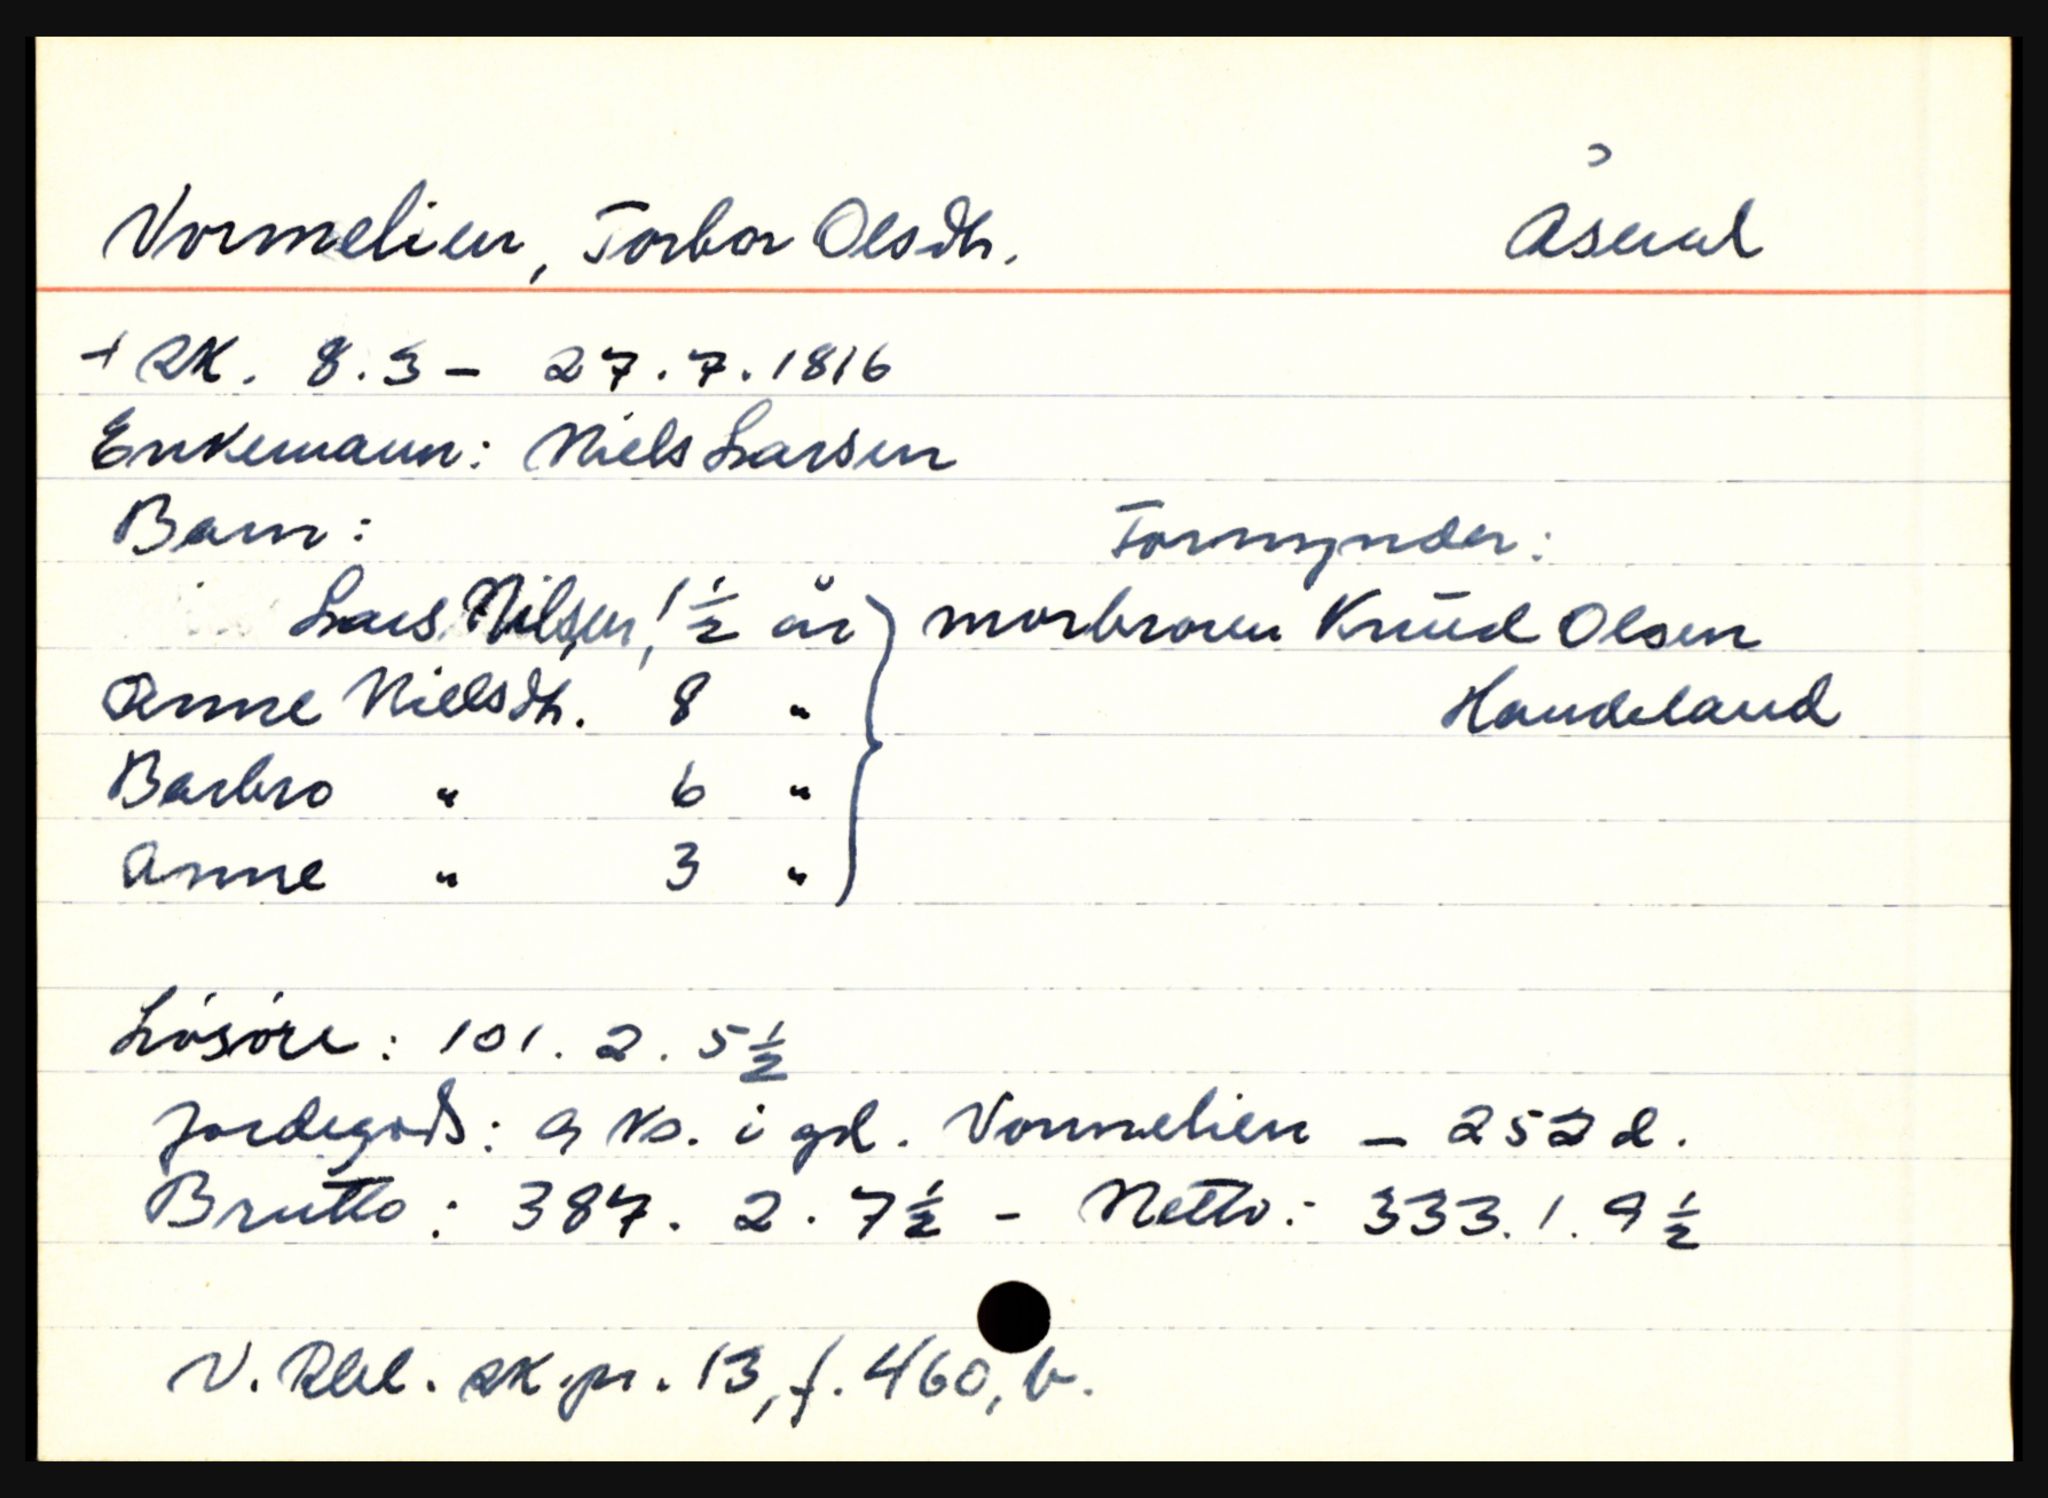 Vormelien, Torbor Olsdtr. Åseral
+ SK. 8.3 - 27.7.1816
Enkemann: Niels Larsen
Barn: Formynder:
Lars Nilsen, 1½ år } morbroren Knud Olsen
Anne Nielsdtr. 8 " Haudeland
Barbro " 6 "
Anne " 3 "
Lösöre: 101. 2. 5½
Jordegods: 9 ks. i gd. Vormelien - 252 d.
Brutto: 387. 2. 7½ - Netto: 333. 1. 9½
V. Rbl. sk.pr. 13, f. 460, b.